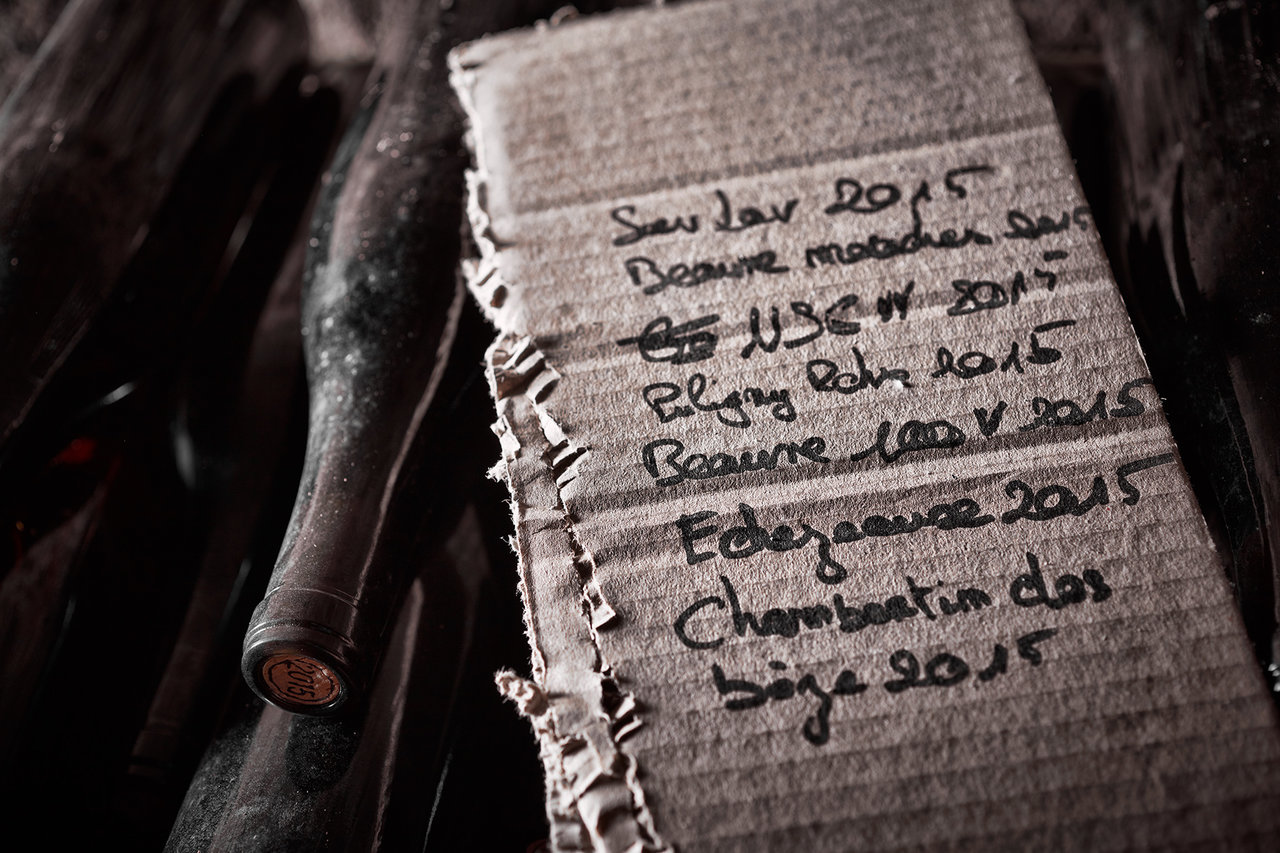 Sav Lav 2015
Beaune maladières 2015
NSG W 2015
Puligny 2015
Beaune 100 V 2015
Echezeause 2015
Chambertin clos
bèze 2015
2015